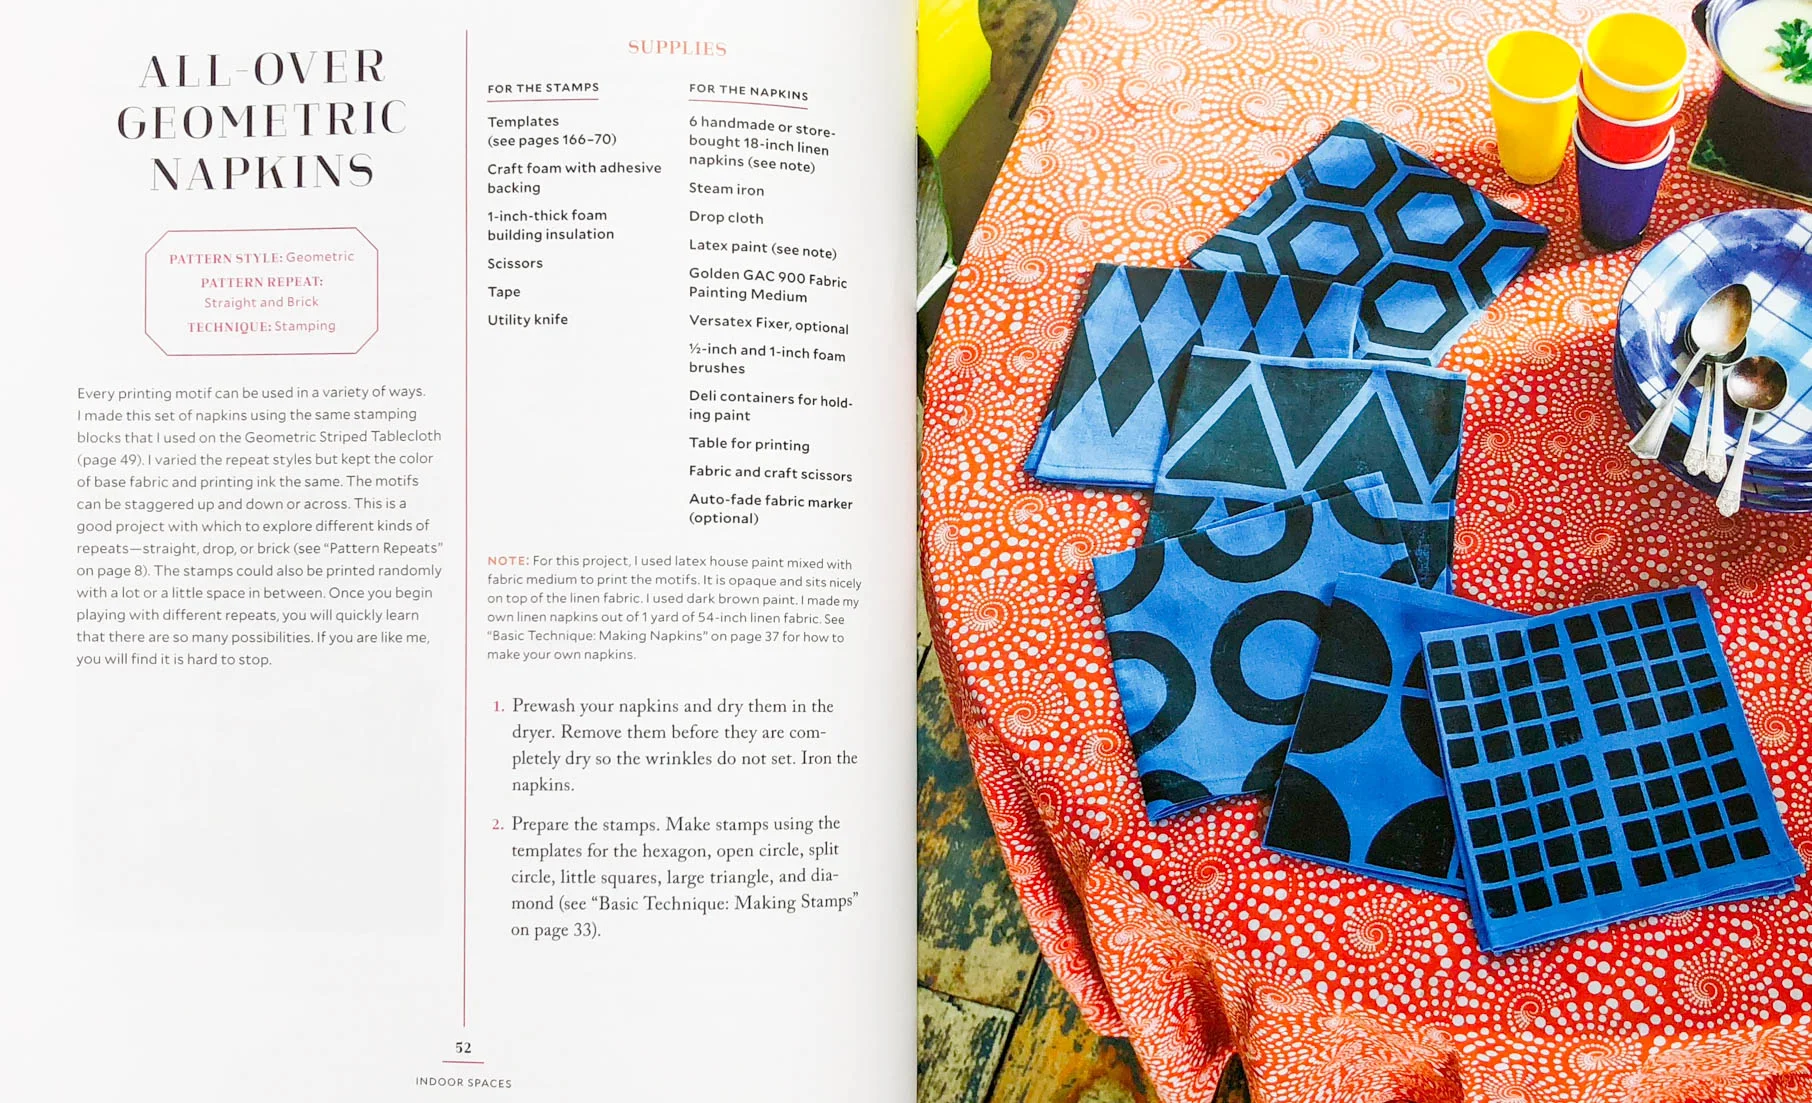 ALL-OVER
GEOMETRIC
NAPKINS
PATTERN STYLE: Geometric
PATTERN REPEAT:
Straight and Brick
TECHNIQUE: Stamping
Every printing motif can be used in a variety of ways.
I made this set of napkins using the same stamping
blocks that I used on the Geometric Striped Tablecloth
(page 49). I varied the repeat styles but kept the color
of base fabric and printing ink the same. The motifs
can be staggered up and down or across. This is a
good project with which to explore different kinds of
repeats—straight, drop, or brick (see “Pattern Repeats”
on page 8). The stamps could also be printed randomly
with a lot or a little space in between. Once you begin
playing with different repeats, you will quickly learn
that there are so many possibilities. If you are like me,
you will find it is hard to stop.
SUPPLIES
FOR THE STAMPS
Templates
(see pages 166–70)
Craft foam with adhesive
backing
1-inch-thick foam
building insulation
Scissors
Tape
Utility knife
FOR THE NAPKINS
6 handmade or store-
bought 18-inch linen
napkins (see note)
Steam iron
Drop cloth
Latex paint (see note)
Golden GAC 900 Fabric
Painting Medium
Versatex Fixer, optional
½-inch and 1-inch foam
brushes
Deli containers for hold-
ing paint
Table for printing
Fabric and craft scissors
Auto-fade fabric marker
(optional)
NOTE: For this project, I used latex house paint mixed with
fabric medium to print the motifs. It is opaque and sits nicely
on top of the linen fabric. I used dark brown paint. I made my
own linen napkins out of 1 yard of 54-inch linen fabric. See
“Basic Technique: Making Napkins” on page 37 for how to
make your own napkins.
1. Prewash your napkins and dry them in the
dryer. Remove them before they are com-
pletely dry so the wrinkles do not set. Iron the
napkins.
2. Prepare the stamps. Make stamps using the
templates for the hexagon, open circle, split
circle, little squares, large triangle, and dia-
mond (see “Basic Technique: Making Stamps”
on page 33).
52
INDOOR SPACES